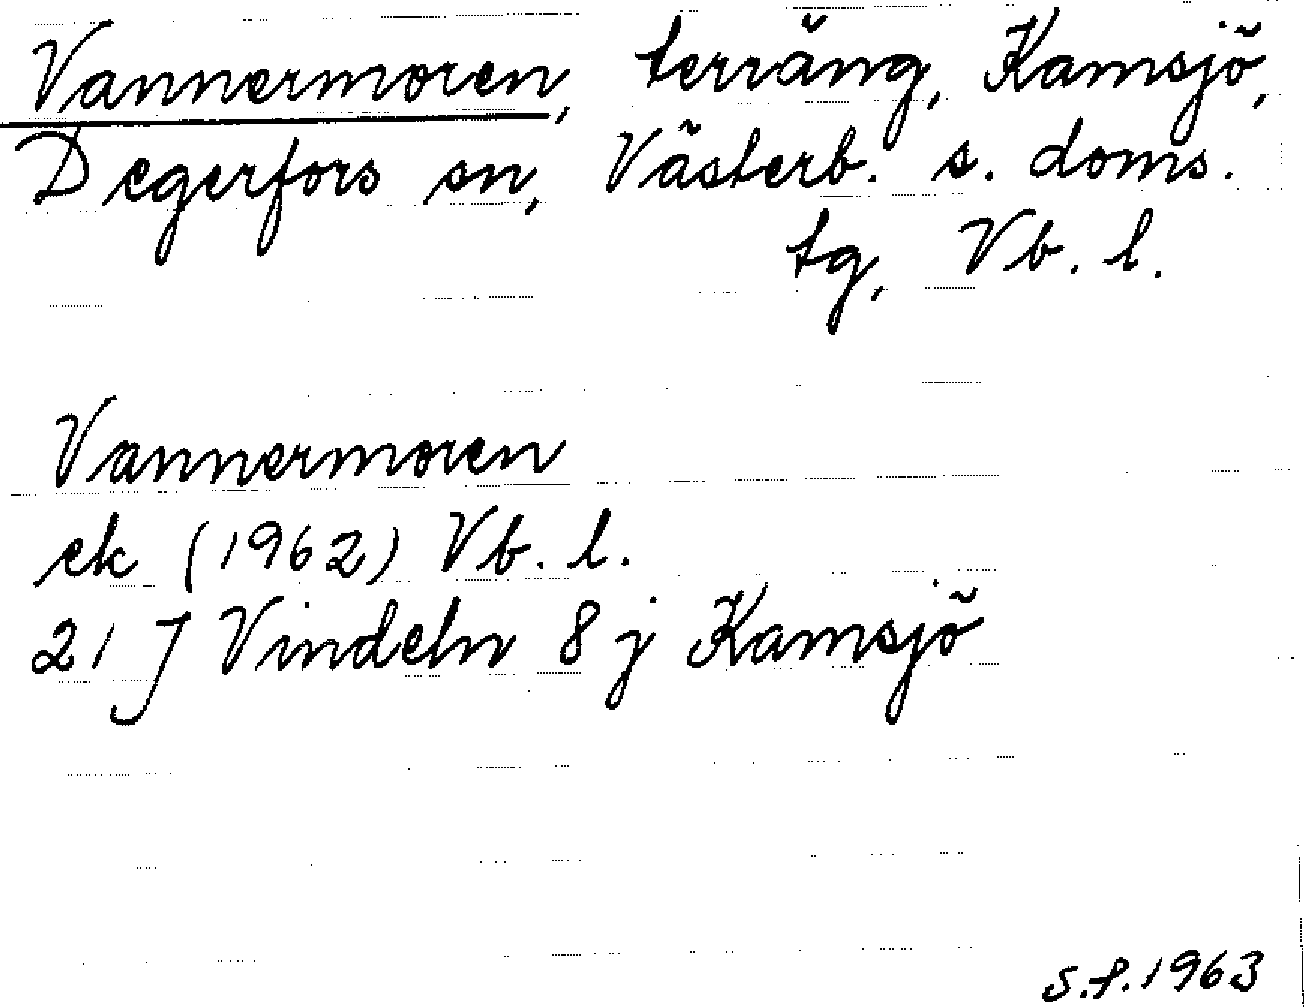 Vannermoren, terräng, Kamsjö,
Degerfors sn, Västerb. s. doms.
tg, Vb. l.
Vannermoren
ek (1962) Vb. l.
21 J Vindeln 8 j Kamsjö
S.f. 1963